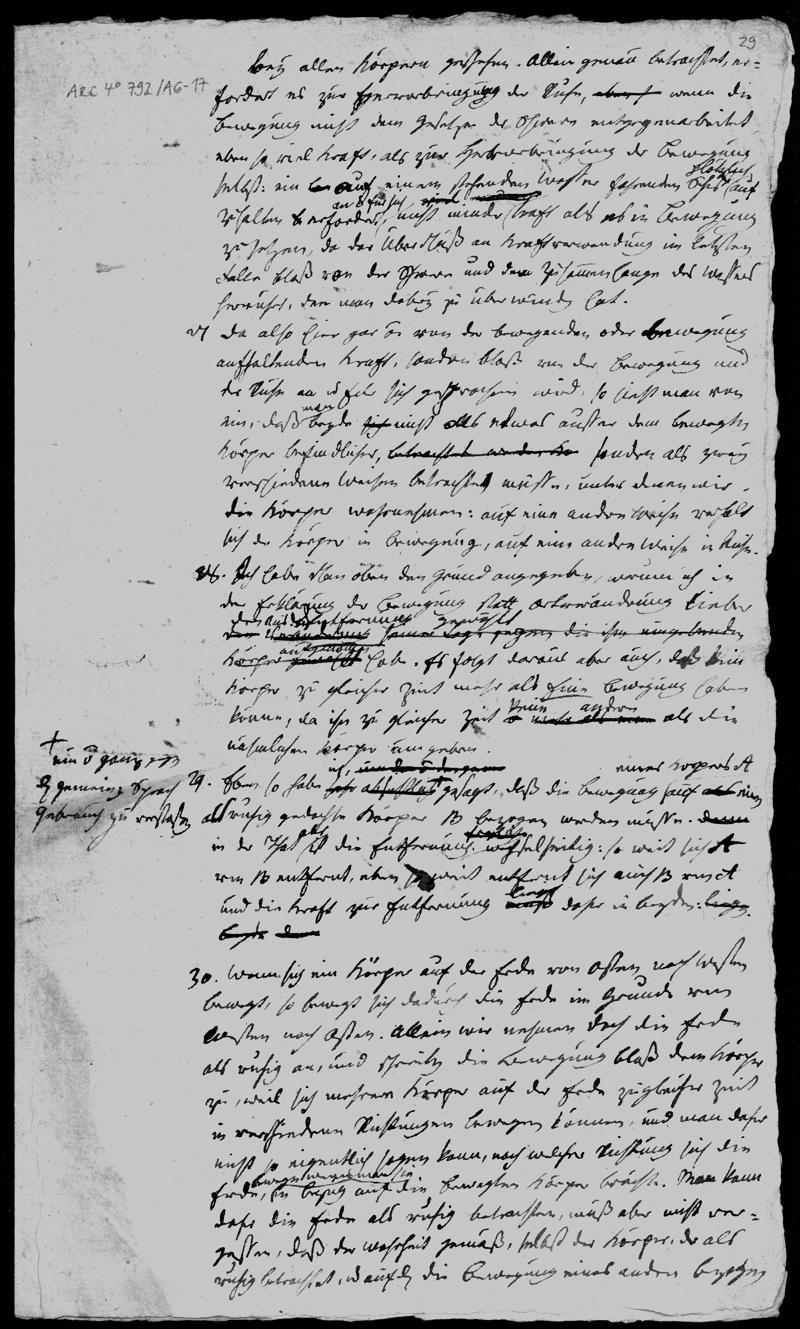 29
ARC 4° 792/A6-17
bey allen Körpern geschehen. Allein genau betrachtet, er=
fordert es zur Hervorbringung der Ruhe, wenn die
Bewegung nicht dem Gesetze der Schwere entgegenarbeitet
eben so viel Kraft, als zur Hervorbringung der Bewegung
selbst: ein auf einem stehenden Wasser fahrendes Schif plötzlich auf
zuhalten erfordert, an u für sich, nicht minder Kraft als es in Bewegung
zu setzen, da der Überschuß an Kraftverwendung im letzten
Falle bloß von der Schwere und dem Zusammenhange des Wassers
herrührt, den man dabey zu überwinden hat.
Da also hier gar von der bewegenden oder Bewegung
aufhaltenden Kraft, sondern bloß von der Bewegung und
der Ruhe an u für sich gesprochen wird, so sieht man von
ein, daß man beyde nicht als etwas ausser dem bewegten
Körper befindliches, sondern als zwey
verschiedene Weisen betrachten müsse, unter denen wir
die Körper wahrnehmen: auf eine andre Weise verhält
sich der Körper in Bewegung, auf eine andre Weise in Ruhe.
28. Ich habe oben den Grund angegeben, warum ich in
der Erklärung der Bewegung statt Ortsveränderung lieber
den Ausdruck Entfernung gewählt
Körper hab. Es folgt daraus aber auch, daß kein
Körper zu gleicher Zeit mehr als Eine Bewegung haben
könne, da ihn zu gleicher Zeit keine andern als die
nehmlichen Körper umgeben.
29. Eben so habe ich, gesagt, daß die Bewegung eines Körpers A auf einen
als ruhig gedachte Körper B bezogen werden müsse.
in der That aber ist die Entfernung wechselseitig: so weit sich A
von B entfernt, eben so weit entfernt sich auch B von A
und die Kraft zur Entfernung liegt daher in beyden:
+
ein u ganz
gemeinen Sprach
Gebrauch zu verstoßen
30. Wenn sich ein Körper auf der Erde von Osten nach Westen
bewegt, so bewegt sich dadurch die Erde im Grunde von
Westen nach Osten. Allein wir nehmen doch die Erde
als ruhig an, und schreiben die Bewegung bloß dem Körper
zu, weil sich mehrere Körper auf der Erde zugleicher Zeit
in verschiedenen Richtungen bewegen können, und man daher
nicht so eigentlich sagen kann, nach welcher Richtung sich die
Erde, bewege wenn man sie in Bezug auf die bewegten Körper brächte. Man kann
daher die Erde als ruhig betrachten, muß aber nicht ver=
gessen, daß der Wahrheit gemäß, selbst der Körper, der als
ruhig betrachtet, u auf den die Bewegung eines andern bezogen